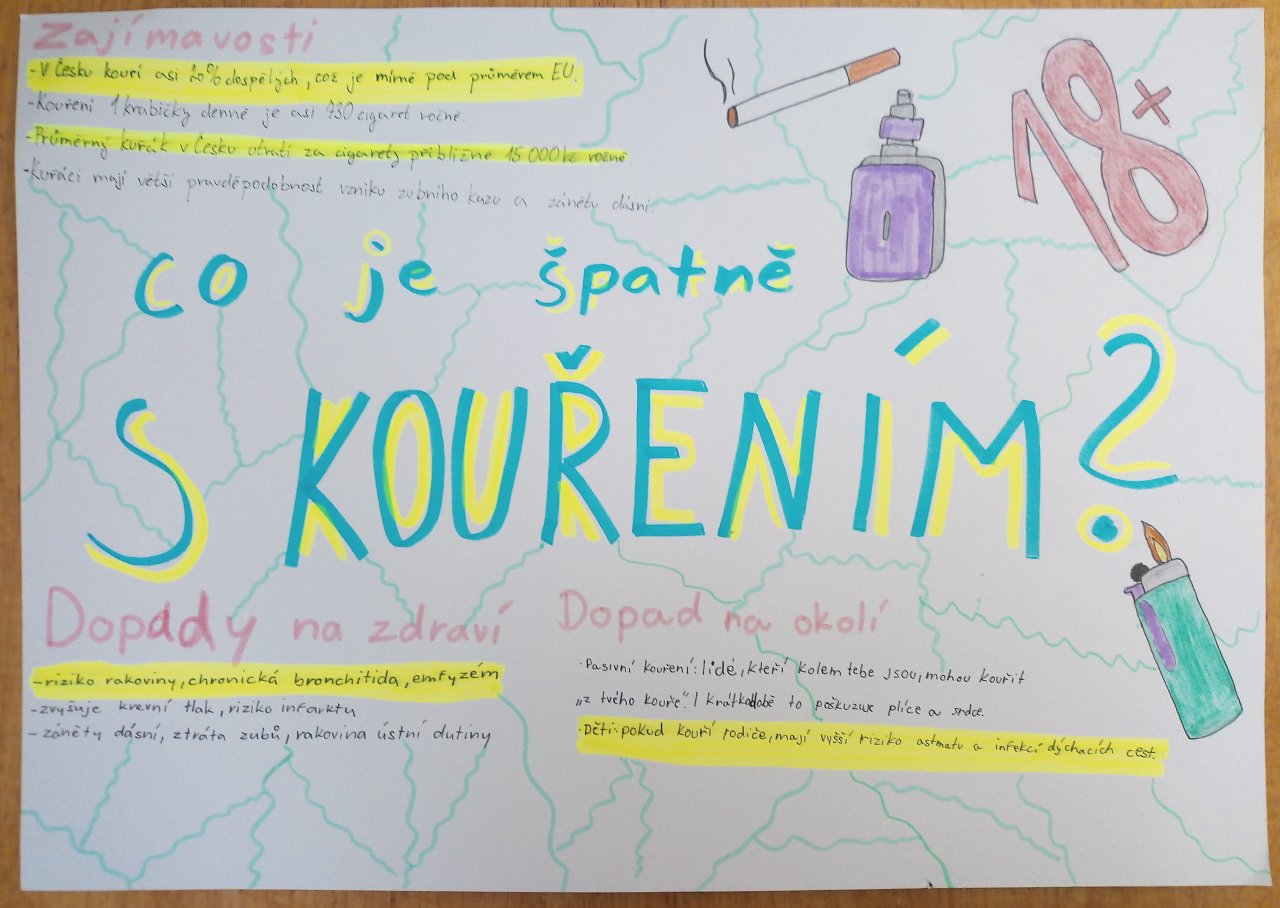 Zajímavosti
-V Česku kouří asi 20% dospělých, což je mírně pod průměrem EU.
-Kouření 1 krabičky denně je asi 730 cigaret ročně.
-Průměrný kuřák v Česku utratí za cigarety přibližně 15 000 kč ročně
-Kuřáci mají větší pravděpodobnost vzniku zubního kazu a zánětu dásní.
18+
co je špatně
S KOUŘENÍM?
Dopady na zdraví
-riziko rakoviny, chronická bronchitida, emfyzém
-zvyšuje krevní tlak, riziko infarktu
- záněty dásní, ztráta zubů, rakovina ústní dutiny
Dopad na okolí
·Pasivní kouření: lidé, kteří kolem tebe jsou, mohou kouřit
„z tvého kouře". I krátkodobě to poškuzuje plíce a srdce.
·Děti: pokud kouří rodiče, mají vyšší riziko astmatu a infekcí dýchacích cest.